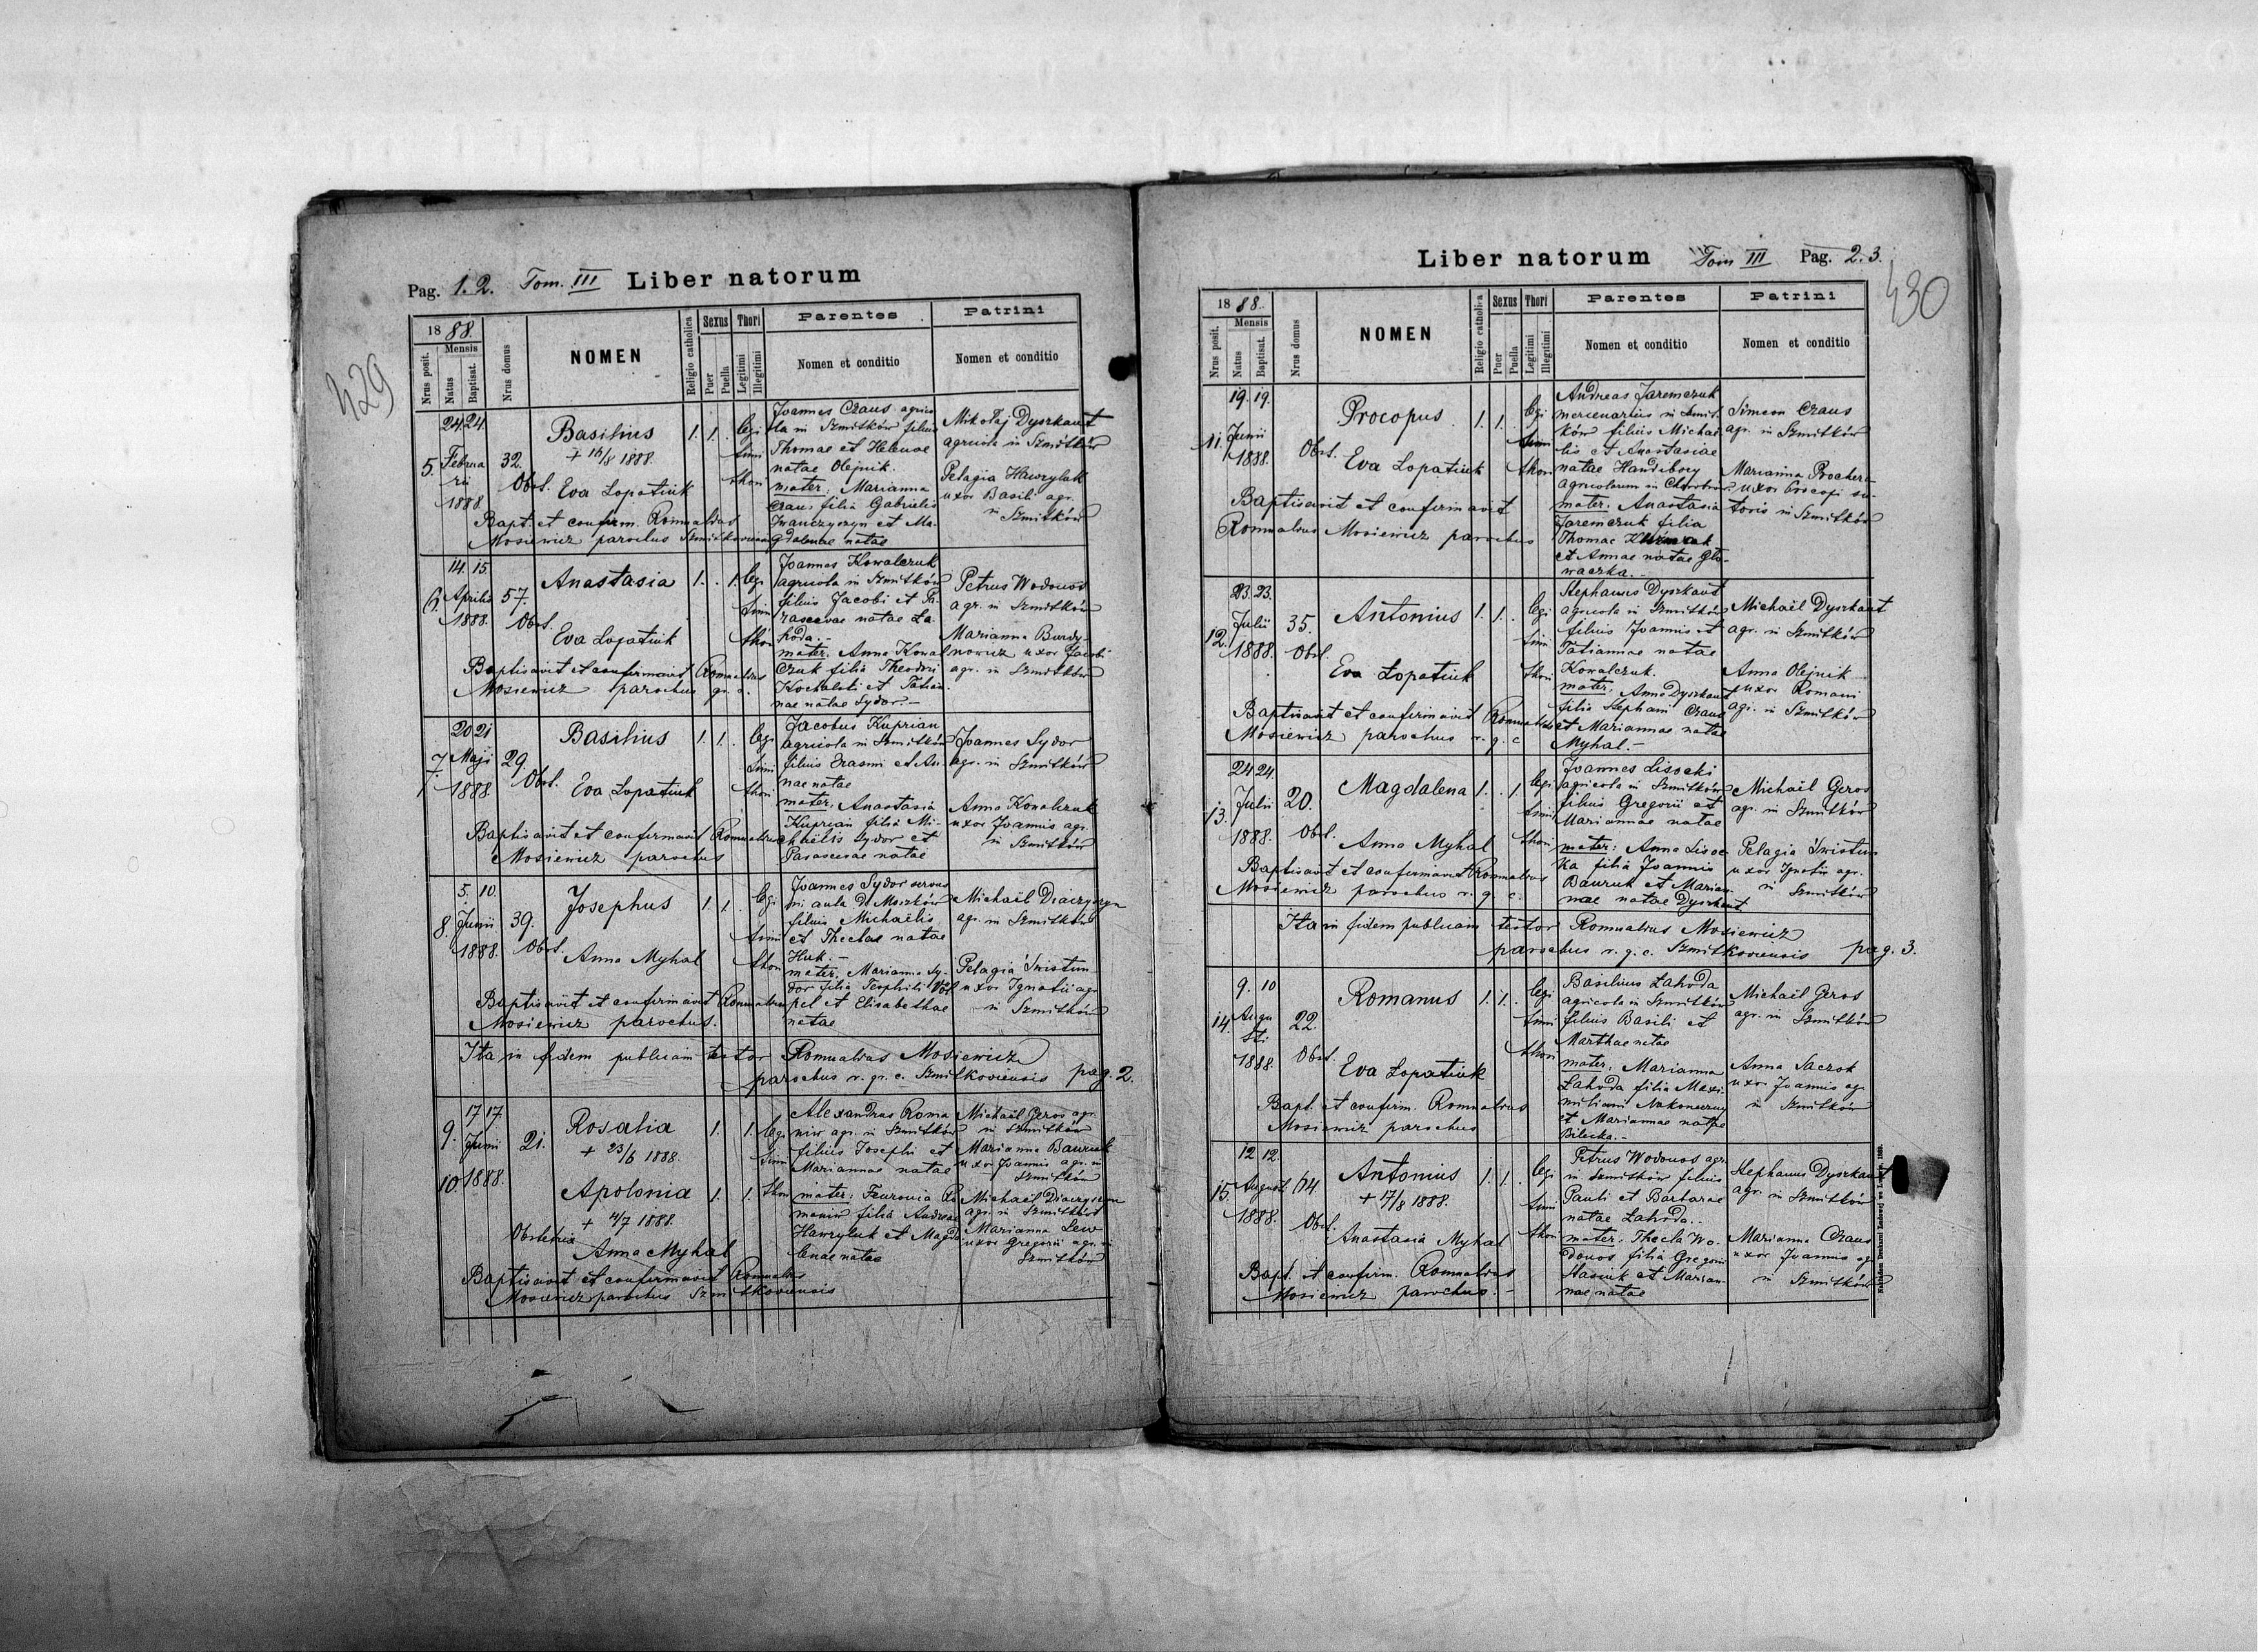 429
Pag. 1. 2. Tom. III Liber natorum
1888.
Nrus posit.
Mensis
Natus
Baptisat.
Nrus domus
NOMEN
Religio catholica
Sexus
Puer
Puella
Thori
Legitimi
Illegitimi
Parentes
Nomen et conditio
Patrini
Nomen et conditio
5.
24. 24.
Februa
rii
1888
32.
Basilius
+ 16/8 1888.
Obst. Eva Lopatiuk
Bapt. et confirm. Romualdus
Mosiewicz parochus Szmitkoviensis
1. 1.
legi
timi
thori
Joannes Czaus agrico
la in Szmitków filius
Thomae et Helenae
natae Olejnik.
mater: Marianna
Czaus filia Gabrielis
Iwanczyszyn et Ma-
gdalenae natae
Mikołaj Dyszkant
agricola in Szmitków
Pelagia Hawryluk
uxor Basili agr.
in Szmitków
6.
14. 15.
Aprilis
1888.
57.
Obst.
Anastasia
Eva Lopatiuk
Baptisavit et confirmavit Romualdus
Mosiewicz parochus gr. c.
1. . 1.
legi
timi
thori
Joannes Kowalczuk
agricola in Szmitków
filius Jacobi et Pa
rascevae natae La-
hoda.-
mater. Anna Kowal
czuk filia Theodori
Kochalski et Tatian
nae natae Sydor.-
Petrus Wodonos
agr. in Szmitków
Marianna Burdy-
nowicz uxor Jacobi
agr. in Szmitków
7.
20 21
Maji
1888.
29.
Obst.
Basilius
Eva Lopatiuk
Baptisavit et confirmavit Romualdus
Mosiewicz parochus
1. 1.
legi
timi
thori
Jacobus Kuprian
agricola in Szmitków
filius Erasmi et An
nae natae
mater, Anastasia
Kuprian filia Mi-
chaëlis Sydor et
Parascevae natae
Joannes Sydor
agr. in Szmitków
Anna Kowalczuk
uxor Joannis agr.
in Szmitków
8.
5. 10.
Junii
1888.
39.
Obst.
Josephus
Anna Myhal
Baptisavit et confirmavit Romualdus
Mosiewicz parochus.
1. 1.
legi
timi
thori
Joannes Sydor servus
in aula D. Moszków
filius Michaëlis
et Theclae natae
Huk.-
mater, Marianna Sy-
dor filia Teophili
pel et Elisabethae
natae
Michaël Diaczyszyn
agr. in Szmitków
Pelagia Swistun
uxor Ignatii agr
in Szmitków
Ita in fidem publicam testor Romualdus Mosiewicz
parochus r. gr. c. Szmitkoviensis pag. 2.
9.
17 17.
Junii
21.
Rosalia
+ 23/6 1888.
1. 1.
10.
1888.
Apolonia
+ 4/7 1888.
1. 1.
Obstetrix
Anna Myhal
Baptisavit et confirmavit Romualdus
Mosiewicz parochus Szmitkoviensis
legi
timi
thori
Alexandrus Roma
niw agr. in Szmitków
filius Josephi et
Mariannae natae
mater: Feuronia Ro
maniw filia Andreae
Hawryluk et Magda
lenae natae
Michaël Geros agr.
in Szmitków
Marianna Bauruk
uxor Joannis agr. in
Szmitków
Michaël Diaczyszyn
agr. in Szmitków
Marianna Lew
uxor Gregorii agr. in
Szmitków
430
Liber natorum Tom III Pag. 2. 3.
1888.
Nrus posit.
Mensis
Natus
Baptisat.
Nrus domus
NOMEN
Religio catholica
Sexus
Puer
Puella
Thori
Legitimi
Illegitimi
Parentes
Nomen et conditio
Patrini
Nomen et conditio
11.
19. 19.
Junii
1888.
Obst.
Procopus
Eva Lopatiuk
Baptisavit et confirmavit
Romualdus Mosiewicz parochus
1. 1.
legi
timi
thori
Andreas Jaremczuk
mercenarius in Szmit-
ków filius Michaë
lis et Anastasiae
natae Handiboy
agricolarum in
mater. Anastasia
Jaremczuk filia
Thomae
et Annae natae Gło-
waczka.-
Simeon Czaus
agr. in Szmitków
Marianna
uxor Procopi su-
toris in Szmitków
12.
23. 23.
Julii
1888.
35.
Obst.
Antonius
Eva Lopatiuk
Baptisavit et confirmavit Romualdus
Mosiewicz parochus r. g. c
1. 1.
legi
timi
thori
Stephanus Dyszkant
agricola in Szmitków
filius Joannis et
Tatiannae natae
Kowalczuk.
mater, Anna Dyszkant
filia Stephani Czaus
et Mariannae natae
Myhal.-
Michaël Dyszkant
agr. in Szmitków
Anna Olejnik
uxor Romani
agr. in Szmitków
13.
24 24.
Julii
1888.
20.
Obst.
Magdalena
Anna Myhal
Baptisavit et confirmavit Romualdus
Mosiewicz parochus r. g. c.
1. . 1
legi
timi
thori
Joannes Lisocki
agricola in Szmitków
filius Gregorii et
Mariannae natae
mater: Anna Lisoc
ka filia Joannis
Bauruk et Marian-
nae natae Dyszkant
Michaël Geros
agr. in Szmitków
Pelagia Swistun
uxor Ignatii agr.
in Szmitków
Ita in fidem publicam testor Romualdus Mosiewicz
parochus r. g. c. Szmitkoviensis pag. 3.
14.
9. 10
Augu
sti
1888.
22.
Obst.
Romanus
Eva Lopatiuk
Bapt. et confirm. Romualdus
Mosiewicz parochus
1. 1.
legi
timi
thori
Basilius Lahoda
agricola in Szmitków
filius Basili et
Marthae natae
mater, Marianna
Lahoda filia Maxi-
miliani Nakoneczny
et Mariannae natae
Bilecka.-
Michaël Geros
agr. in Szmitków
Anna Saczok
uxor Joannis agr
in Szmitków
15.
12 12.
Augusti
1888.
64.
Obst.
Antonius
+ 17/8 1888.
Anastasia Myhal
Bapt. et confirm. Romualdus
Mosiewicz parochus.-
1. 1.
legi
timi
thori
Petrus Wodonos agr.
in Szmitków filius
Pauli et Barbarae
natae Lahoda..
mater: Thecla Wo-
donos filia Gregorii
Stasiuk et Marian-
nae natae
Stephanus Dyszkant
agr. in Szmitków
Marianna Czaus
uxor Joannis agr
in Szmitków